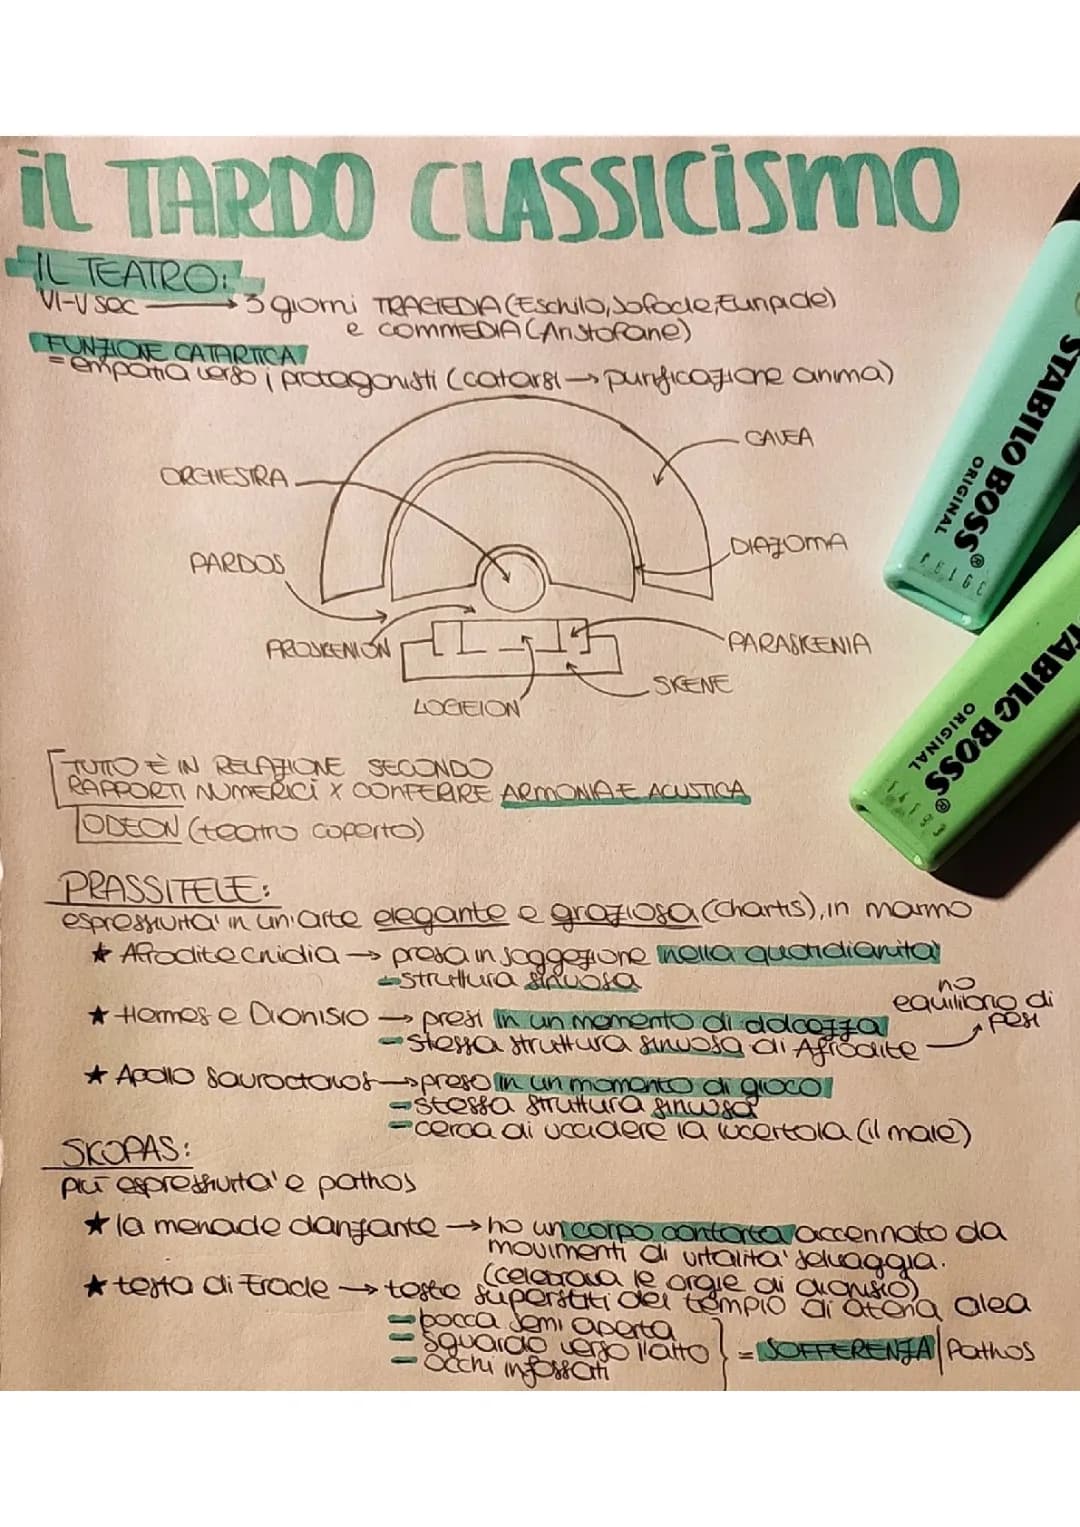 iL TARDO CLASSICiSmO
IL TEATRO:
VI-V sec → 3 giorni TRAGEDIA (Eschilo, Sofocle, Euripide)
e COMMEDIA (Aristofane)
FUNZIONE CATARTICA
= empatia verso i protagonisti (catarsi → purificazione anima)
CAVEA
ORCHESTRA
DIAZOMA
PARDOS
PROSKENION
PARASKENIA
SKENE
LOGEION
TUTTO È IN RELAZIONE SECONDO
RAPPORTI NUMERICI X CONFERIRE ARMONIA E ACUSTICA
ODEON (teatro coperto)
PRASSITELE:
espressività in un'arte elegante e graziosa (charis), in marmo
★ Afrodite cnidia → presa in soggezione nella quotidianità
- struttura sinuosa
no
equilibrio di
pesi
★ Hermes e Dionisio → presi in un momento di dolcezza
- stessa struttura sinuosa di Afrodite
★ Apollo Sauroctonos → preso in un momento di gioco
- stessa struttura sinuosa
- cerca di uccidere la lucertola (il male)
SKOPAS:
più espressività e pathos
★ la menade danzante → ha un corpo contorto accennato da
movimenti di vitalità selvaggia.
(celebrava le orgie di dionisio)
★ testa di Eracle → teste superstiti del tempio di atena alea
- bocca semi aperta
- sguardo verso l'alto
- occhi infossati
} = SOFFERENZA/Pathos
STABILO BOSS®
ORIGINAL
STABILO BOSS®
ORIGINAL